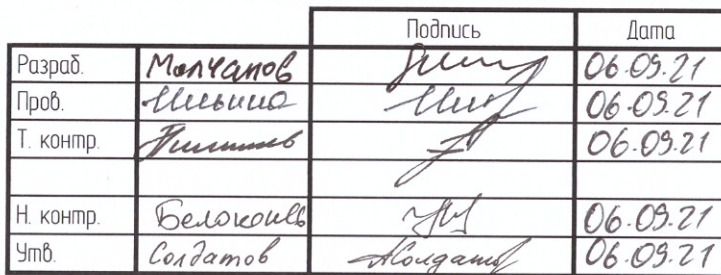 Подпись Дата
Разраб. Молчанов 06.09.21
Пров. Ильина 06.09.21
Т. контр. 06.09.21
Н. контр. Белоконь 06.09.21
Утв. Солдатов 06.09.21